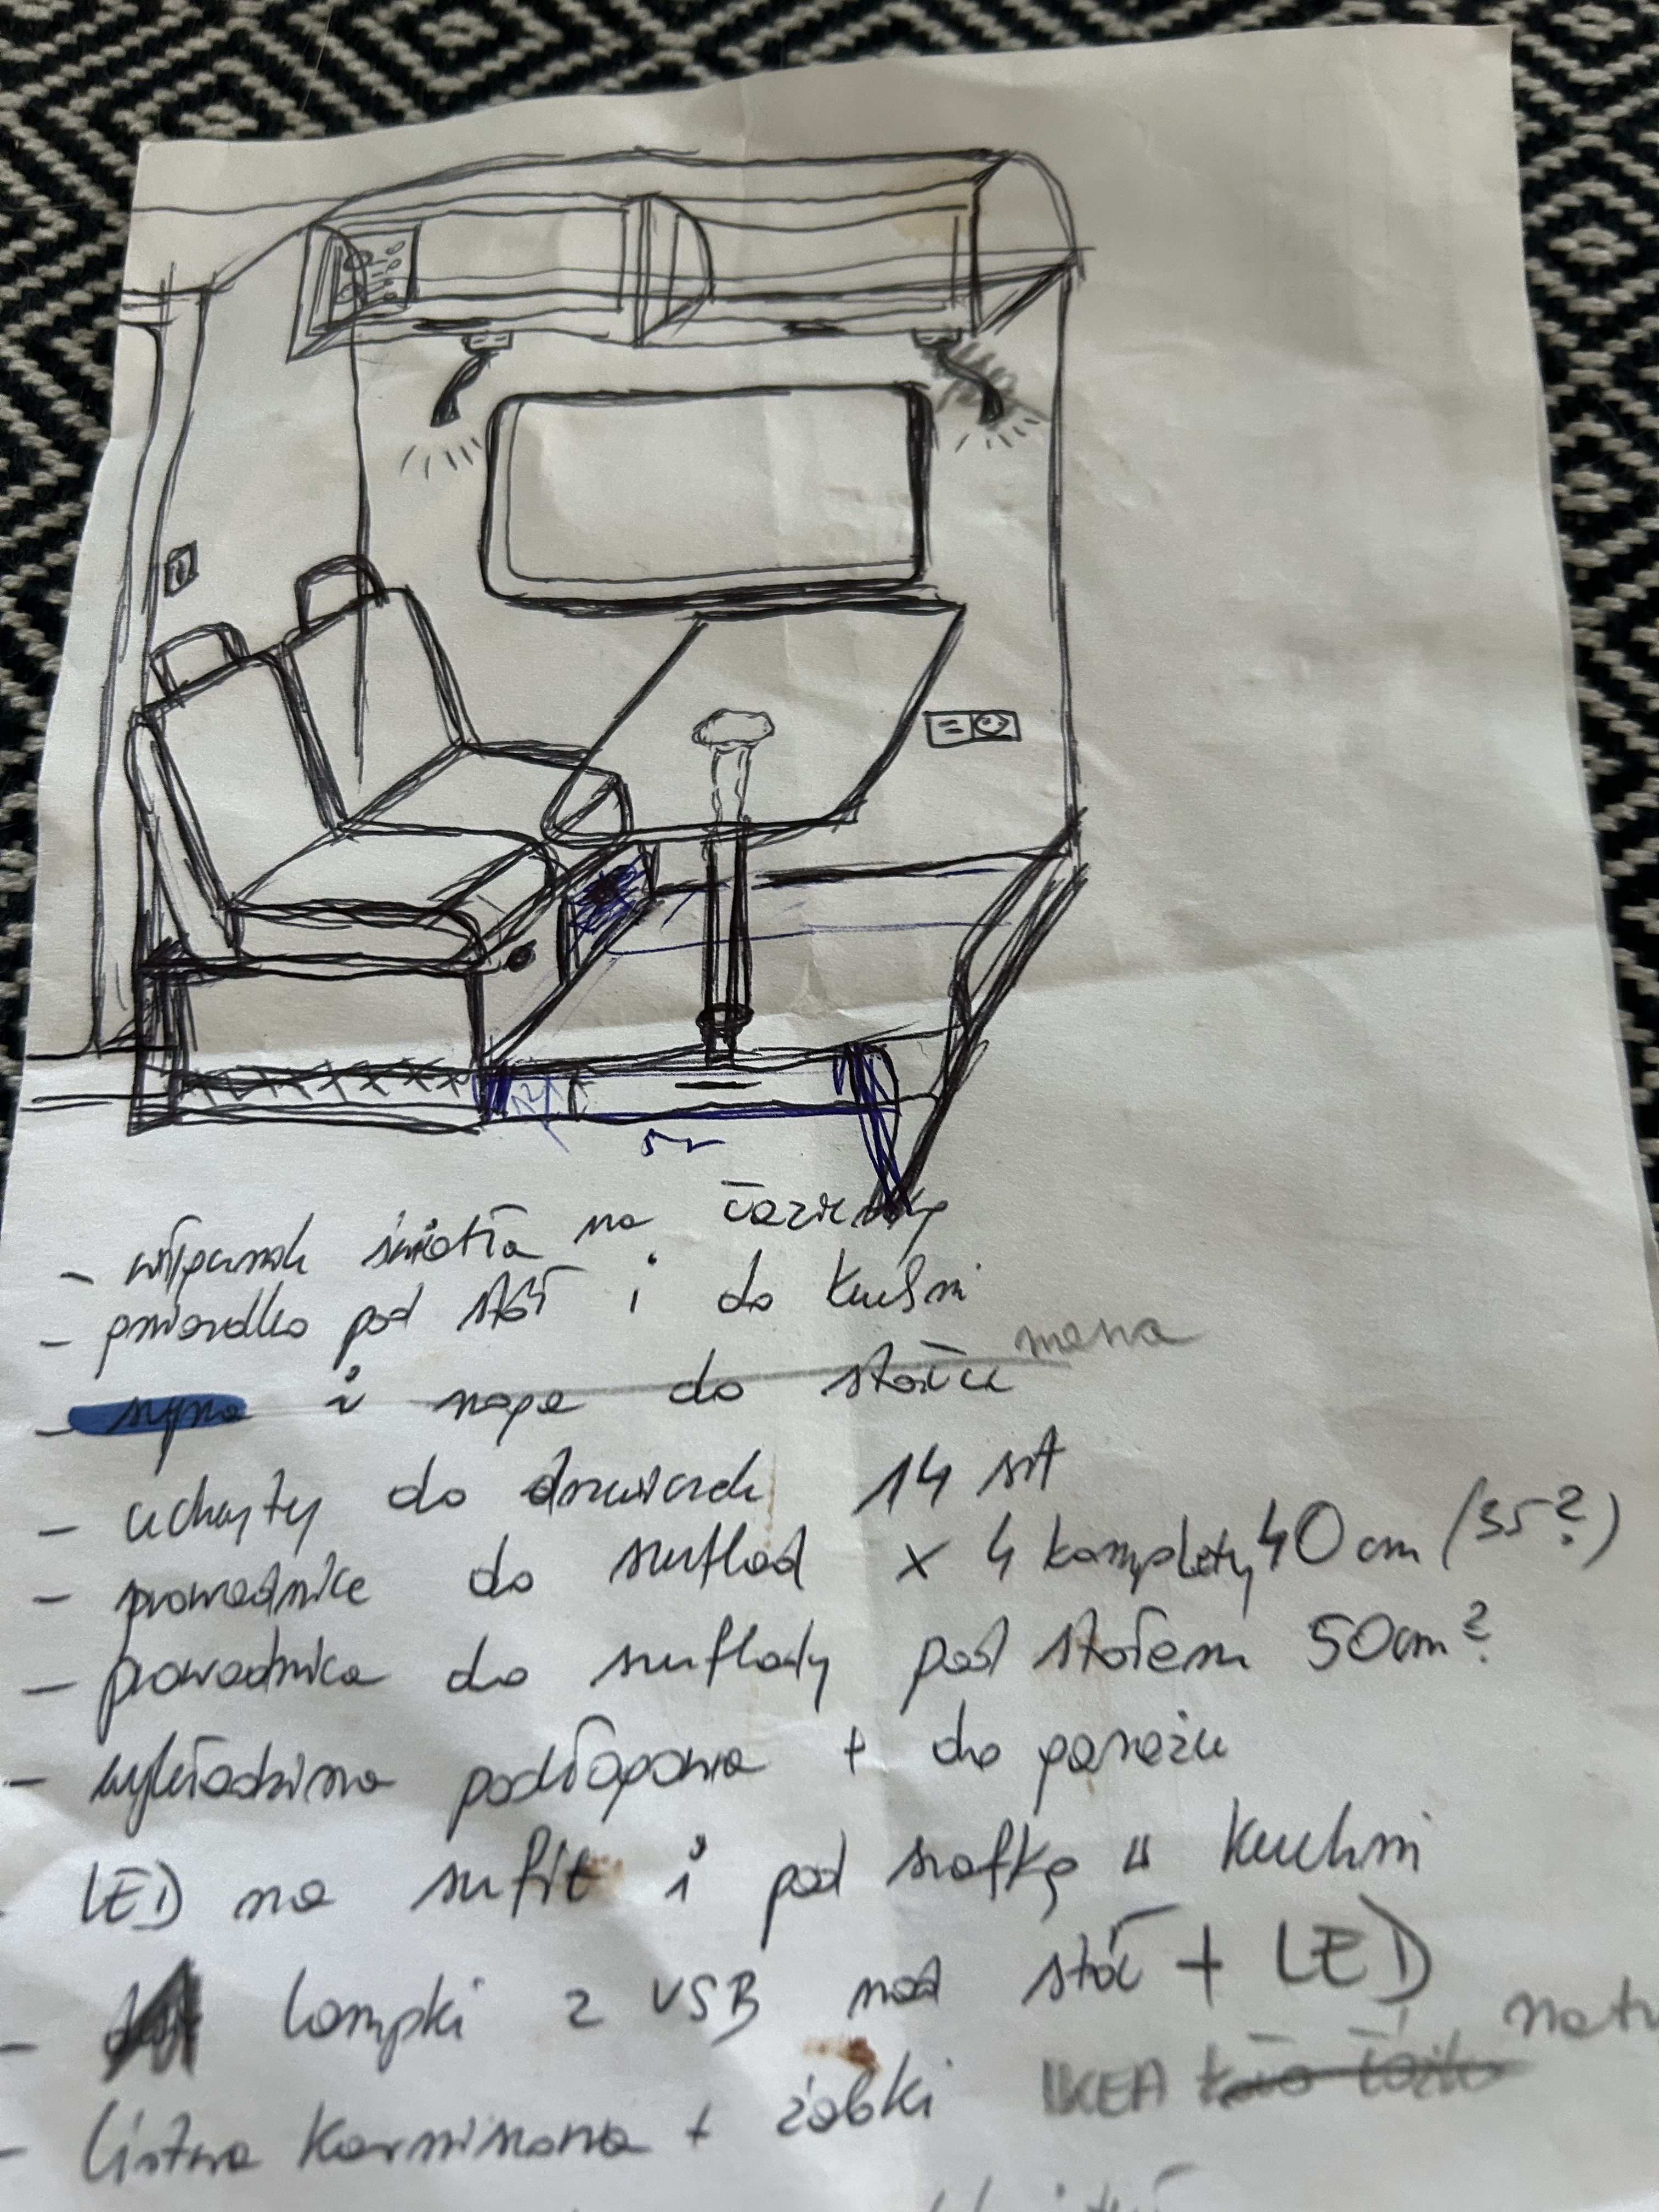 - włącznik światła na łazienkę
- gniazdko pod stół i do kuchni
- szyna i noga do stołu mewa
- uchwyty do drzwiczek 14 szt
- prowadnice do szuflad x 4 komplety 40cm (35?)
- prowadnica do szuflady pod stołem 50cm?
- wykładzina podłogowa + do garażu
LED na sufit i pod szafkę w kuchni
- lampki z USB nad stół + LED
- listwa karniszowa + żabki IKEA